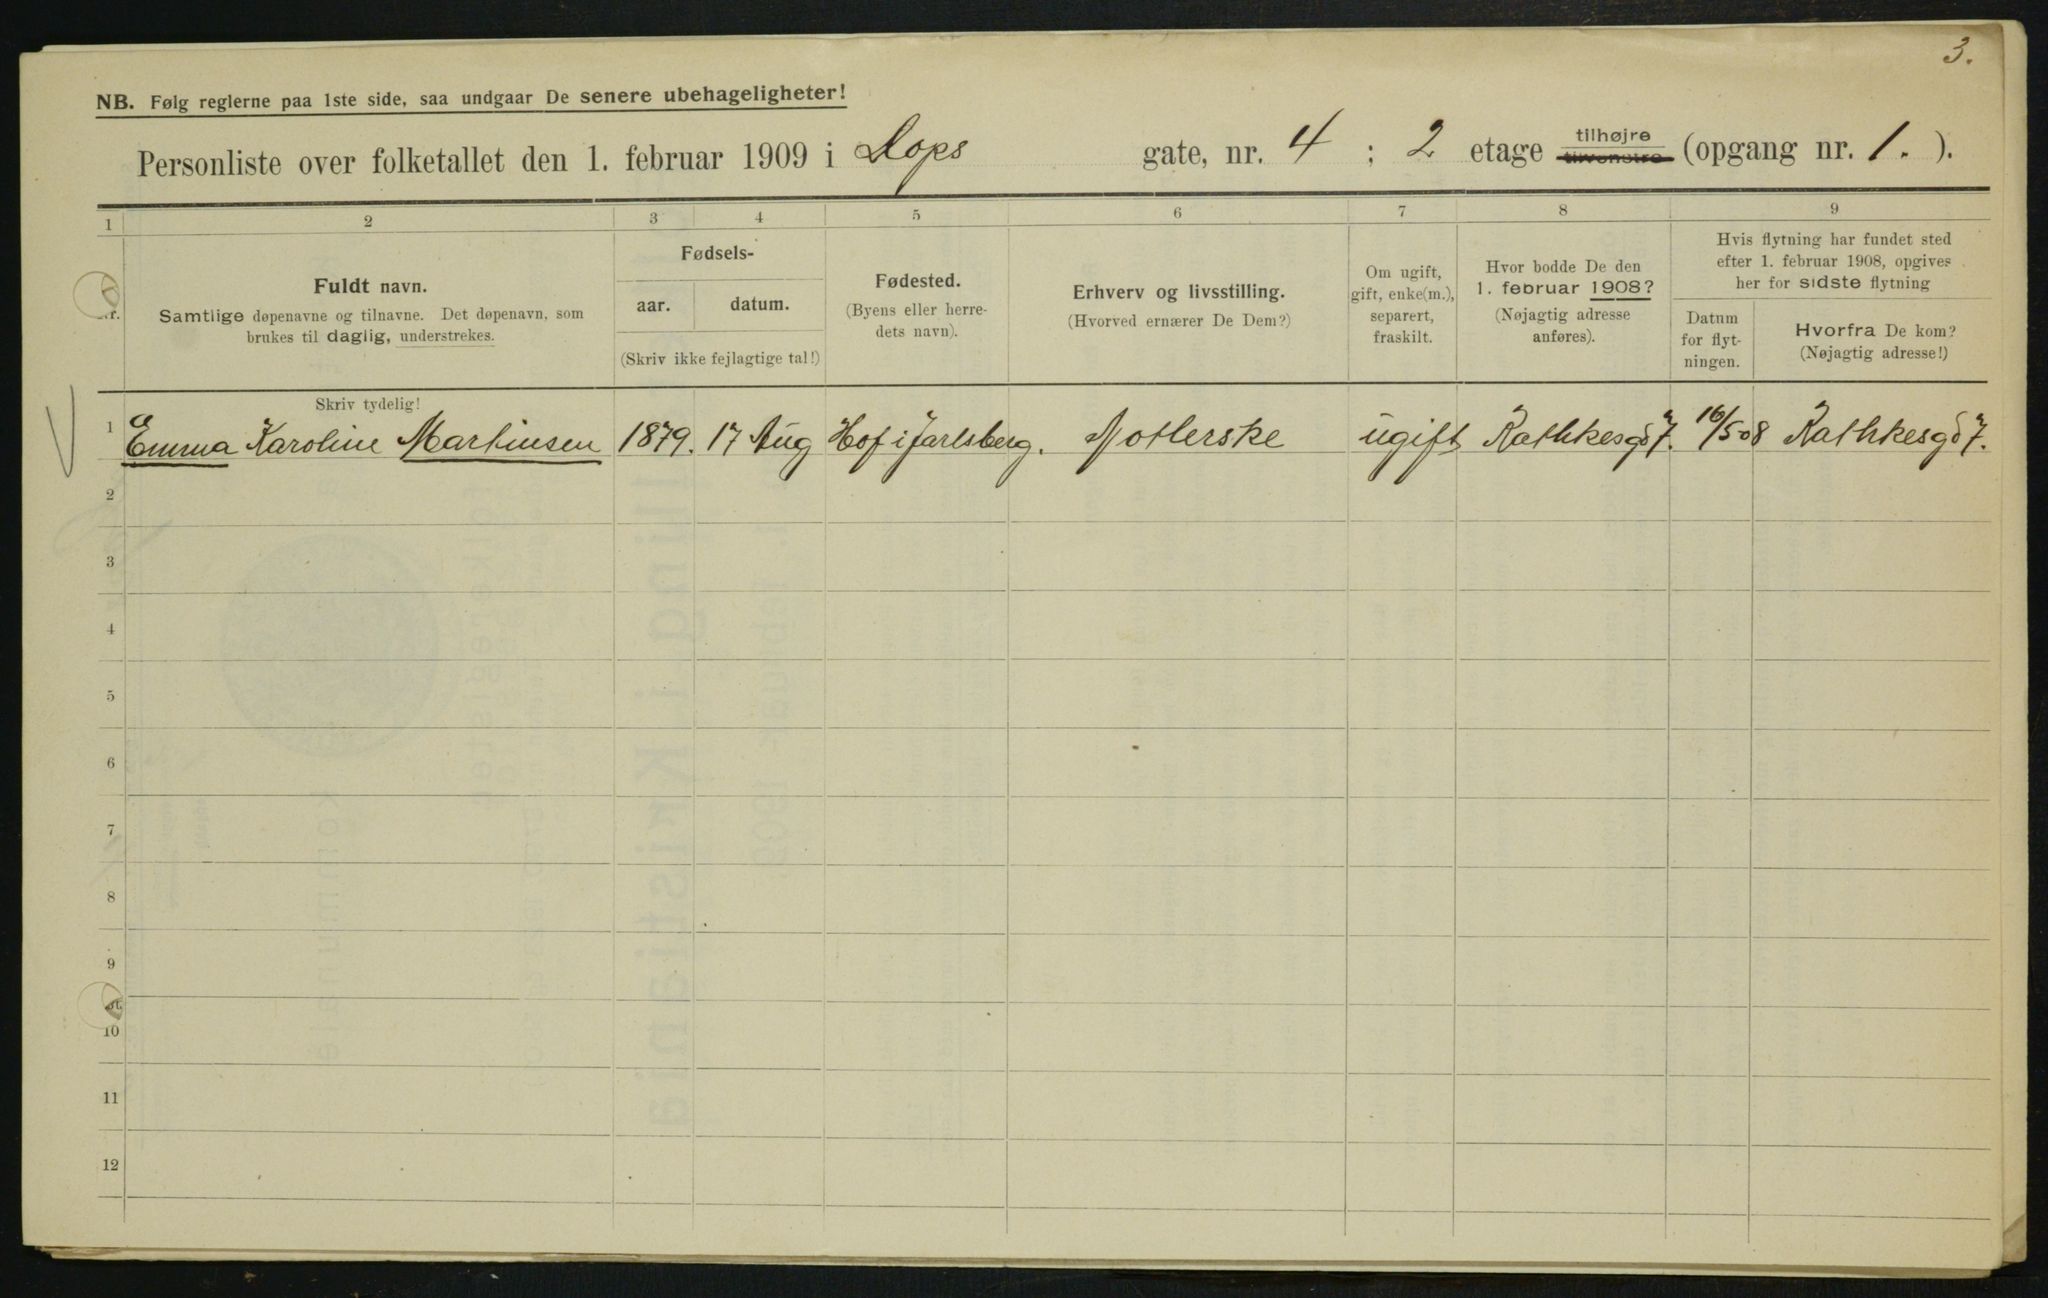 3.
NB. Følg reglerne paa 1ste side, saa undgaar De senere ubehageligheter!
Personliste over folketallet den 1. februar 1909 i Dops gate, nr. 4 ; 2 etage tilhøjre tilvenstre (opgang nr. 1. ).
1 2 3 4 5 6 7 8 9
Fuldt navn.
Samtlige døpenavne og tilnavne. Det døpenavn, som
brukes til daglig, understrekes.
Fødsels-
aar. datum.
(Skriv ikke fejlagtige tal!)
Fødested.
(Byens eller herre-
dets navn).
Erhverv og livsstilling.
(Hvorved ernærer De Dem?)
Om ugift,
gift, enke(m.),
separert,
fraskilt.
Hvor bodde De den
1. februar 1908?
(Nøjagtig adresse
anføres).
Hvis flytning har fundet sted
efter 1. februar 1908, opgives
her for sidste flytning
Datum
for flyt-
ningen.
Hvorfra De kom?
(Nøjagtig adresse!)
Skriv tydelig!
1 Emma Karoline Martinsen 1879. 17 Aug Hof i Jarlsberg. ugift Rathkesgd 7. 16/5 08 Rathkesgd 7.
2
3
4
5
6
7
8
9
10
11
12